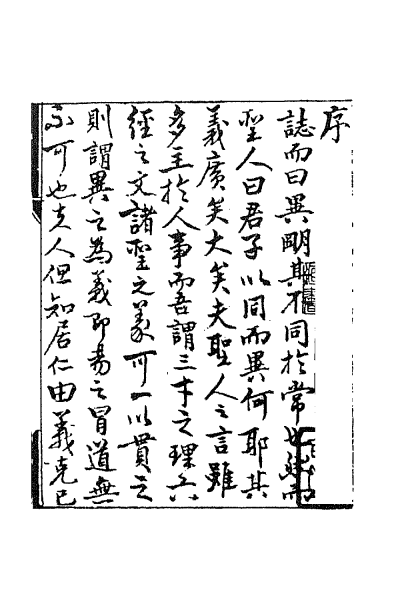 序
誌而曰異明其不同於常也然而
聖人曰君子以同而異何耶其
義廣矣大矣夫聖人之言雖
多主於人事而吾謂三才之理六
經之文諸聖之彖可一以貫之
則謂異之為義即易之冒道無
不可也夫人但知居仁由義克已